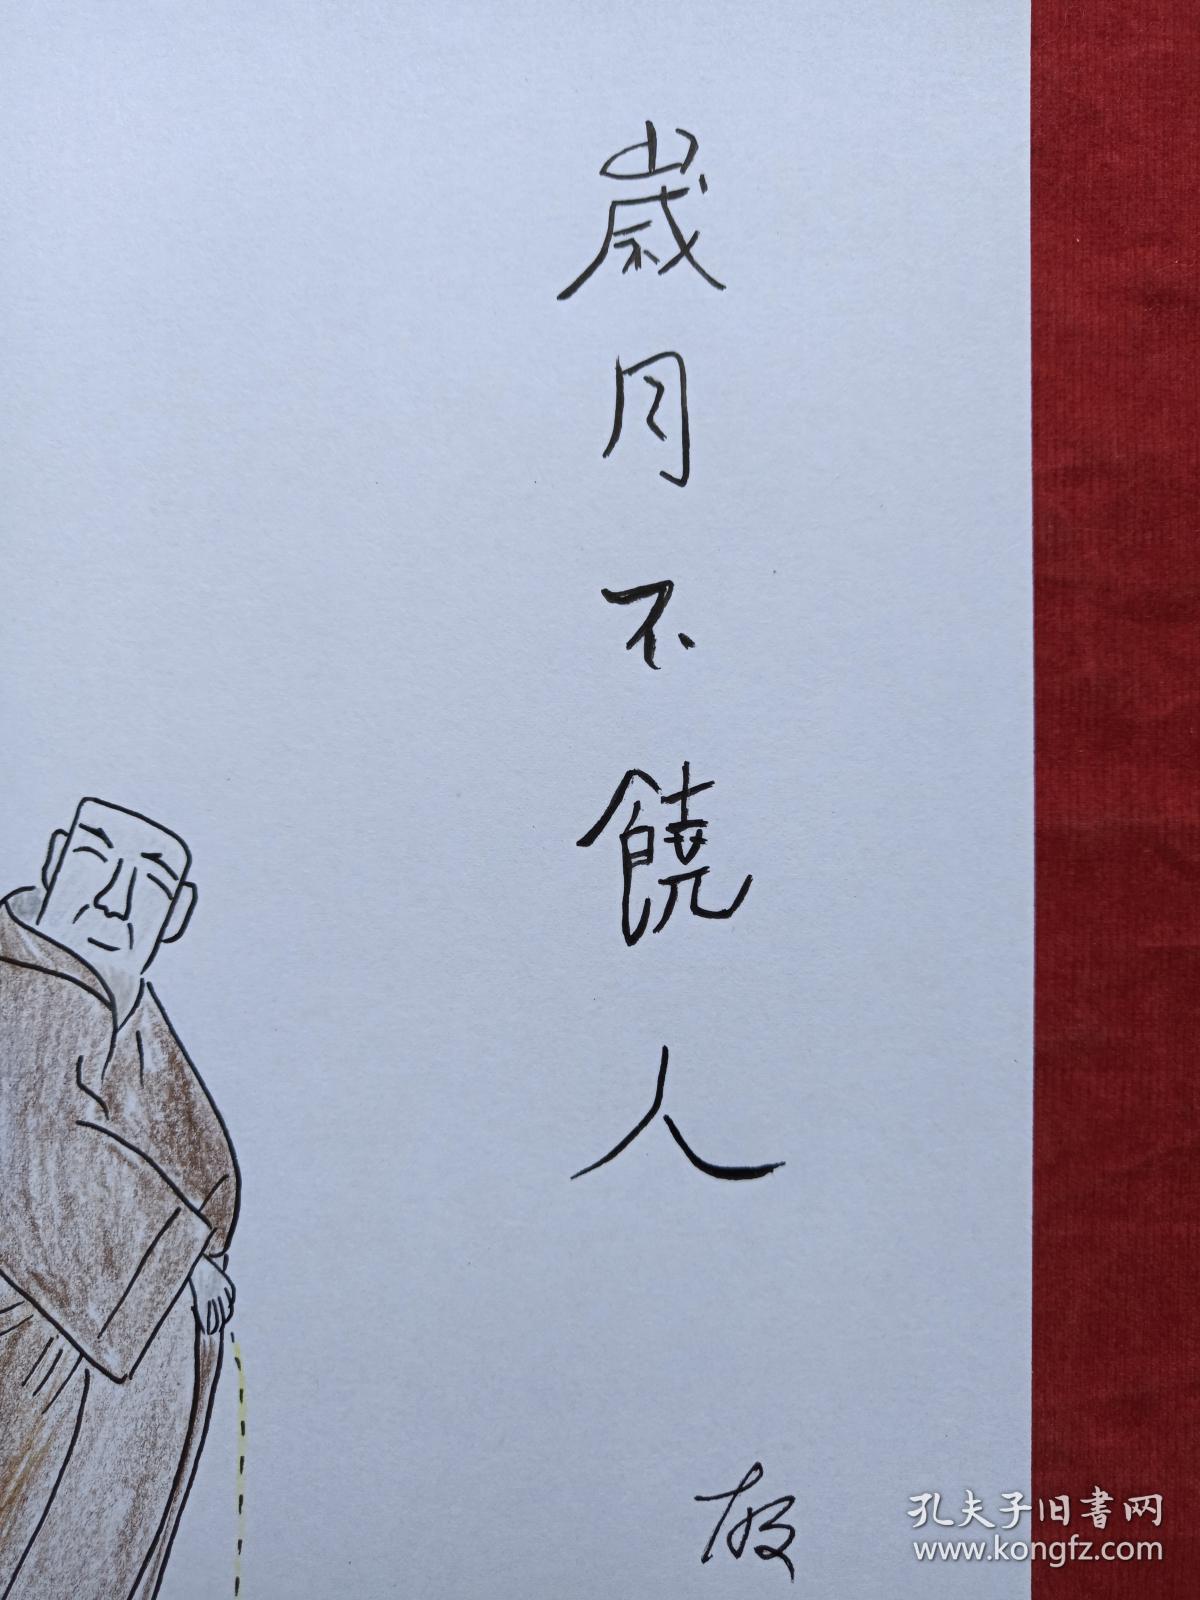 歲月不饒人
孔夫子旧書网
www.kongfz.com